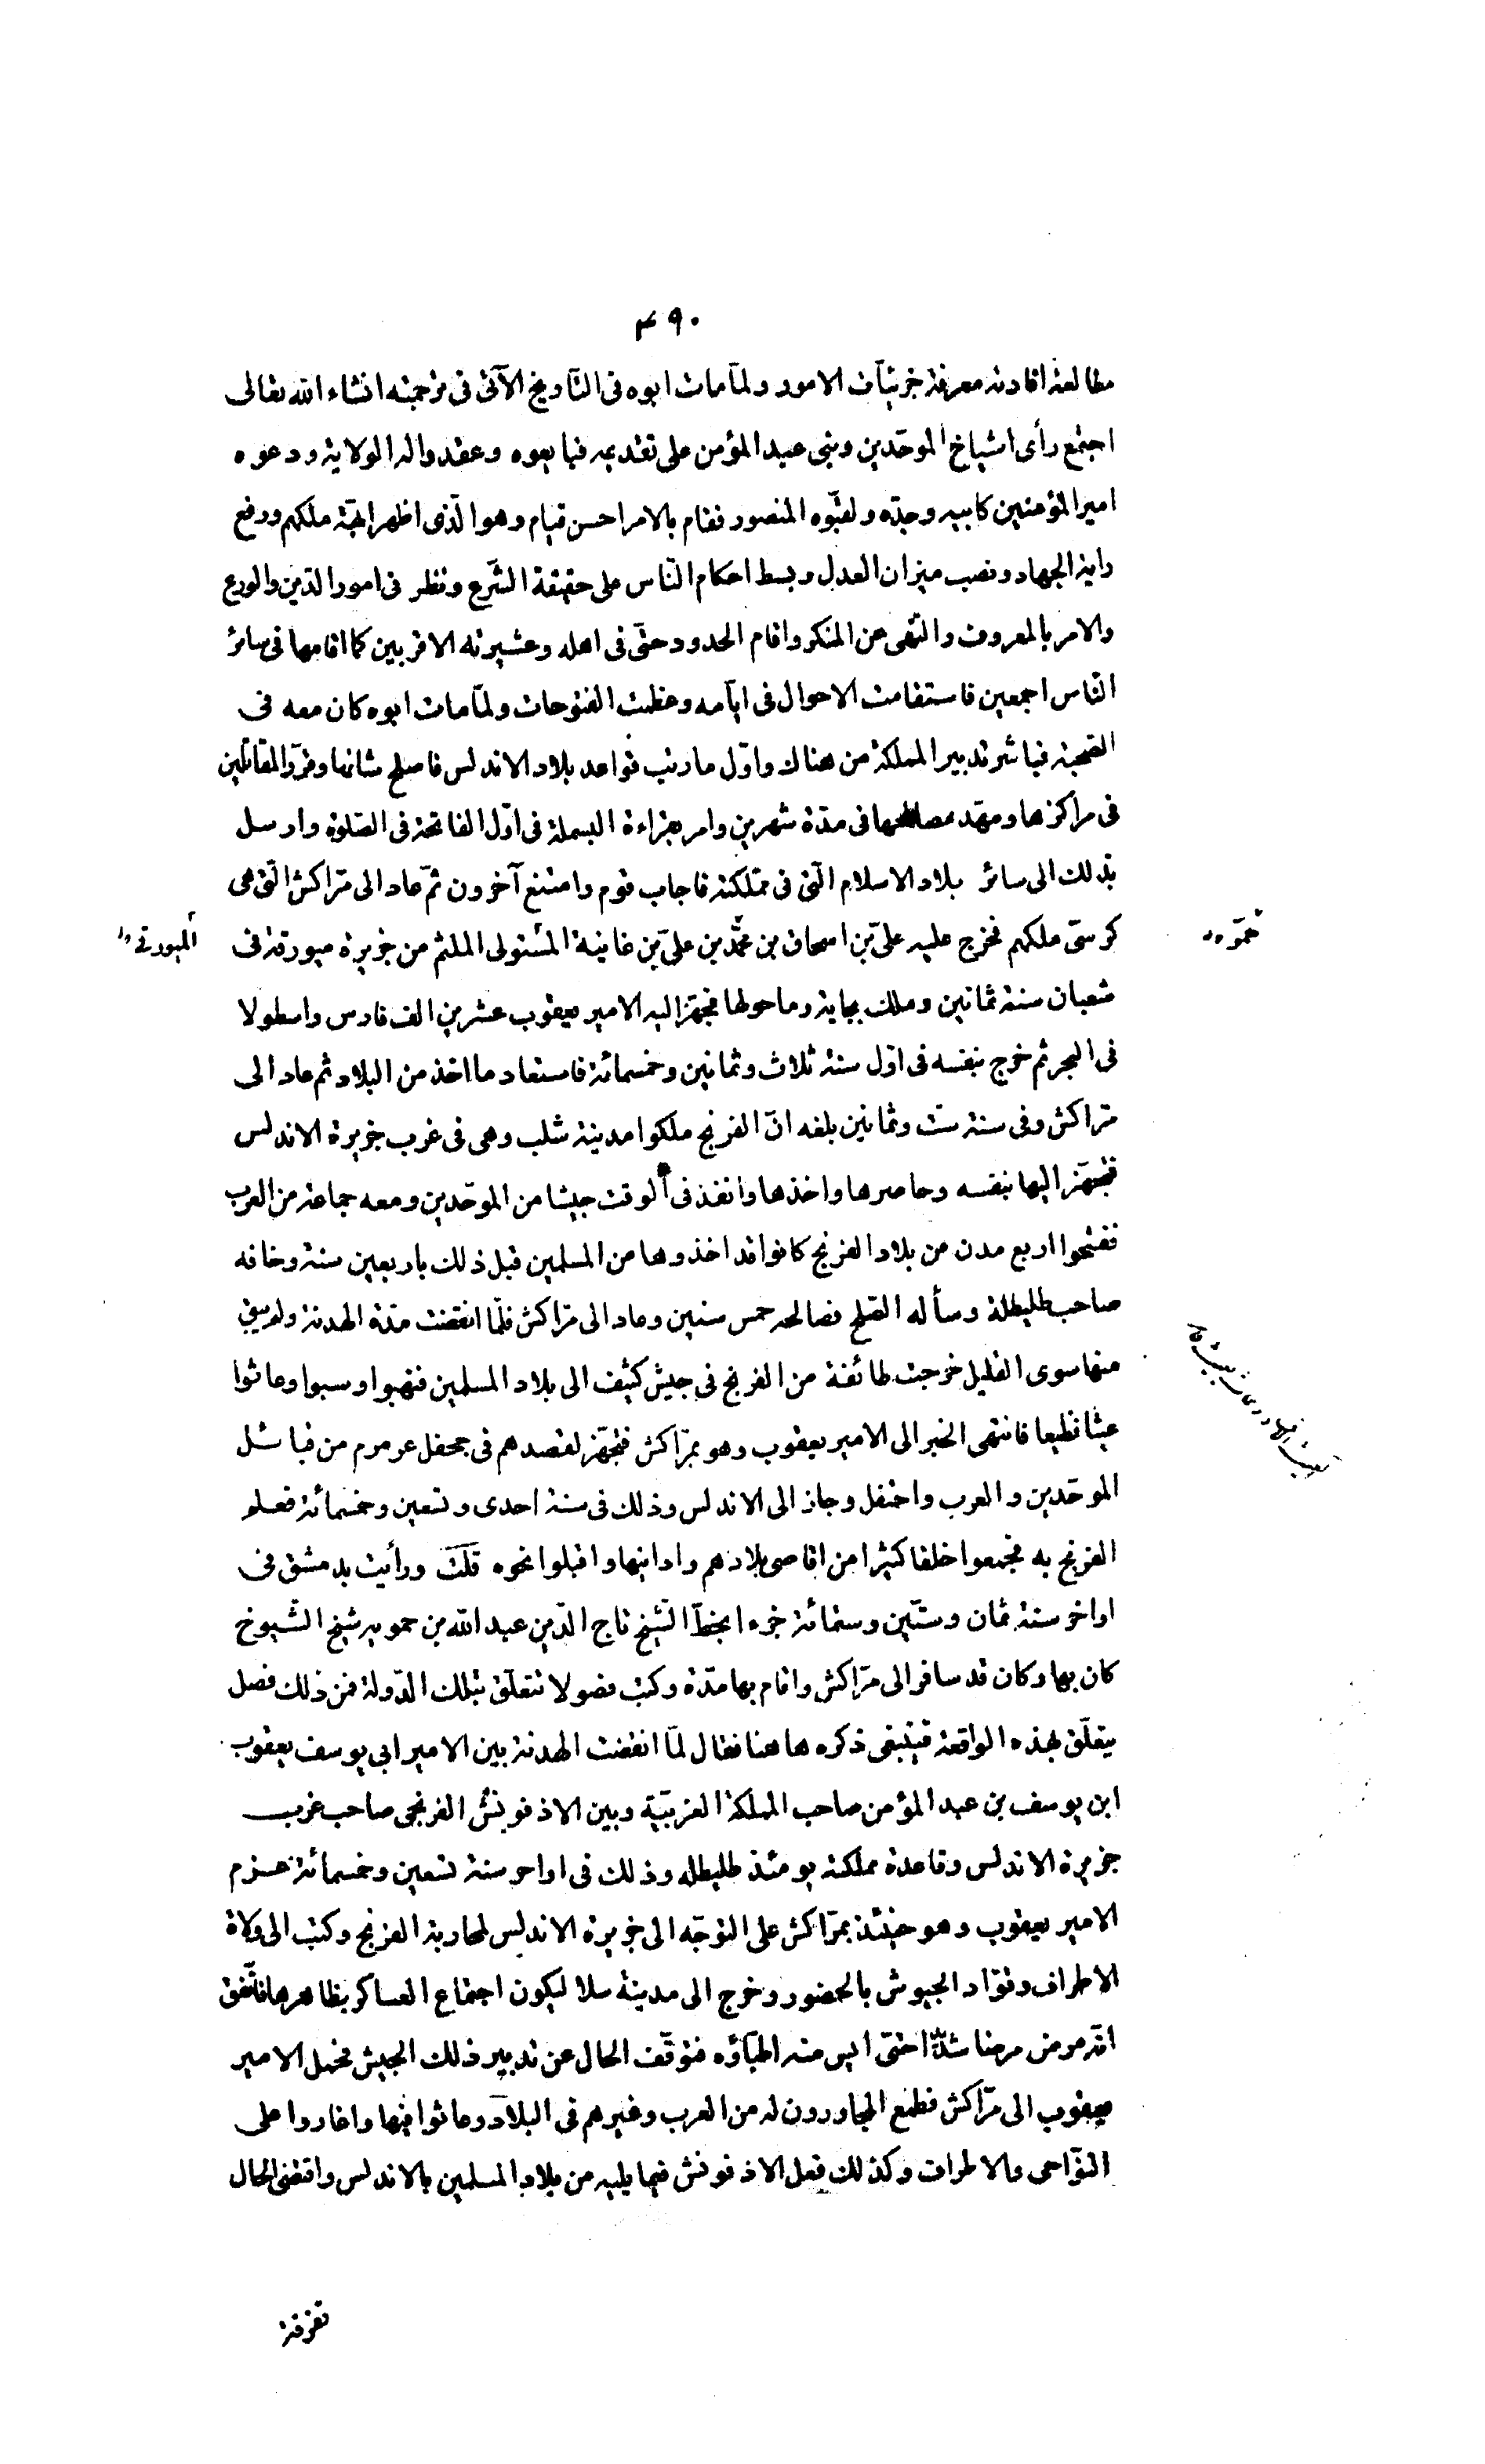 ٣٩٠
مطالعة افادته معرفة جزئيّات الامور ولمّا مات ابوه فى التّاريخ الآتى فى ترجمته انشاء الله تعالى
اجتمع رأى اشياخ الموحّدين وبنى عبد المؤمن على تقديمه فبايعوه وعقدوا له الولاية ودعوه
امير المؤمنين كابيه وجدّه ولقبّوه المنصور فقام بالامر احسن قيام وهو الّذى اظهر ابهّة ملكهم ورفع
راية الجهاد ونصب ميزان العدل وبسط احكام النّاس على حقيقة الشّرع ونظر فى امور الدّين والورع
والامر بالمعروف والنّهى عن المنكر واقام الحدود حتّى فى اهله وعشيرته الاقربين كما اقامها فى سائر
النّاس اجمعين فاستقامت الاحوال فى ايّامه وعظمت الفتوحات ولمّا مات ابوه كان معه فى
الصّحبة فباشر تدبير المملكة من هناك واوّل ما رتب قواعد بلاد الاندلس فاصلح شانها وقرّر المقاتلين
فى مراكزها ومهّد مصالحها فى مدّة شهرين وامر بقراءة البسملة فى اوّل الفاتحة فى الصّلوة وارسل
بذلك الى سائر بلاد الاسلام الّتى فى مملكته فاجاب قوم وامتنع آخرون ثمّ عاد الى مرّاكش الّتى هى
كرسىّ ملكهم فخرج عليه علىّ بن اسحاق بن محمّد بن علىّ بن غانية المستولى الملثم من جزيرة ميورقة فى
حمّو
الميورقى
شعبان سنة ثمانين وملك بجاية وما حولها فجهّز اليه الامير يعقوب عشرين الف فارس واسطولا
فى البحر ثم خرج بنفسه فى اوّل سنة ثلاث وثمانين وخمسمائة فاستعاد ما اخذ من البلاد ثم عاد الى
مرّاكش وفى سنة ستّ وثمانين بلغه انّ الفرنج ملكوا مدينة شلب وهى فى غرب جزيرة الاندلس
فتجهّز اليها بنفسه وحاصرها واخذها وانفذ فى الوقت جيشا من الموحّدين ومعه جماعة من العرب
ففتحوا اربع مدن من بلاد الفرنج كانوا قد اخذوها من المسلمين قبل ذلك باربعين سنة وخافه
صاحب طليطلة وسأله الصّلح فصالحه خمس سنين وعاد الى مرّاكش فلمّا انقضت مدّة الهدنة ولم يبق
منها سوى القليل خرجت طائفة من الفرنج فى جيش كثيف الى بلاد المسلمين فنهبوا وسبوا وعاثوا
عيثا فظيعا فانتهى الخبر الى الامير يعقوب وهو بمرّاكش فتجهّز لقصدهم فى جحفل عرمرم من قبائل
الموحّدين والعرب واحتفل وجاز الى الاندلس وذلك فى سنة احدى وتسعين وخمسمائة فعلم
الفرنج به فجمعوا خلقا كثيرا من اقاصى بلادهم وادانيها واقبلوا نحوه قلت ورأيت بدمشق فى
اواخر سنة ثمان وستّين وستمائة جزءا بخطّ الشّيخ تاج الدّين عبد الله بن حمويه شيخ الشّيوخ
كان بها وكان قد سافر الى مرّاكش واقام بها مدّة وكتب فصولا تتعلّق بتلك الدّولة فمن ذلك فصل
يتعلّق بهذه الواقعة فينبغى ذكره هاهنا فقال لمّا انقضت الهدنة بين الامير ابى يوسف يعقوب
ابن يوسف بن عبد المؤمن صاحب المملكة الغربيّة وبين الاذفونش الفرنجى صاحب غرب
جزيرة الاندلس وقاعدة مملكته يومئذ طليطله وذلك فى اواخر سنة تسعين وخمسمائة عزم
الامير يعقوب وهو حينئذ بمرّاكش على التوجّه الى جزيرة الاندلس لمحاربة الفرنج وكتب الى ولاة
الاطراف وقوّاد الجيوش بالحضور وخرج الى مدينة سلا ليكون اجتماع العساكر بظاهرها فاتّفق
انّه مرض مرضا شديدا حتى ايس منه اطبّاؤه فتوقّف الحال عن تدبير ذلك الجيش فحمل الامير
يعقوب الى مرّاكش فطمع المجاورون له من العرب وغيرهم فى البلاد وعاثوا فيها واغاروا على
النّواحى والاطراف وكذلك فعل الاذفونش فيما يليه من بلاد المسلمين بالاندلس واقتضى الحال
تفرقة